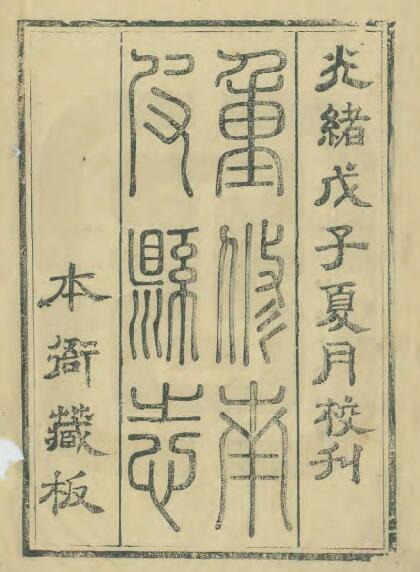 光緒戊子夏月校刊
重修南
皮縣志
本衙藏板